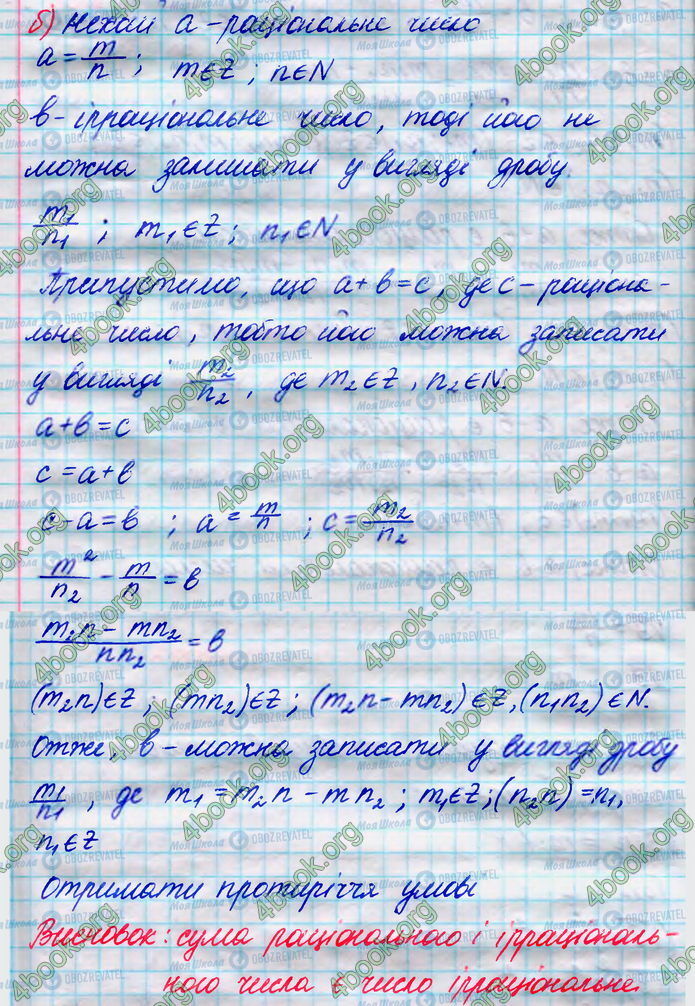 б) Нехай a - раціональне число
a = m/n ; m∈Z ; n∈N
в - ірраціональне число, тоді його не
можна залишати у вигляді дробу
m₁/n₁ ; m₁∈Z ; n₁∈N
Припустимо, що a + в = c, де c - раціона-
льне число, тобто його можна записати
у вигляді m₂/n₂, де m₂∈Z, n₂∈N.
a + в = c
c = a + в
c - a = в ; a = m/n ; c = m₂/n₂
m²/n₂ - m/n = в
(m₂n - mn₂)/(nn₂) = в
(m₂n)∈Z ; (mn₂)∈Z ; (m₂n - mn₂)∈Z, (n₁n₂)∈N.
Отже, в - можна записати у вигляді дробу
m₁/n₁, де m₁ = m₂n - mn₂ ; m₁∈Z ; (n₂n) = n₁,
n₁∈Z
Отримати протиріччя умові
Висновок: сума раціонального і ірраціональ-
ного числа є число ірраціональне.